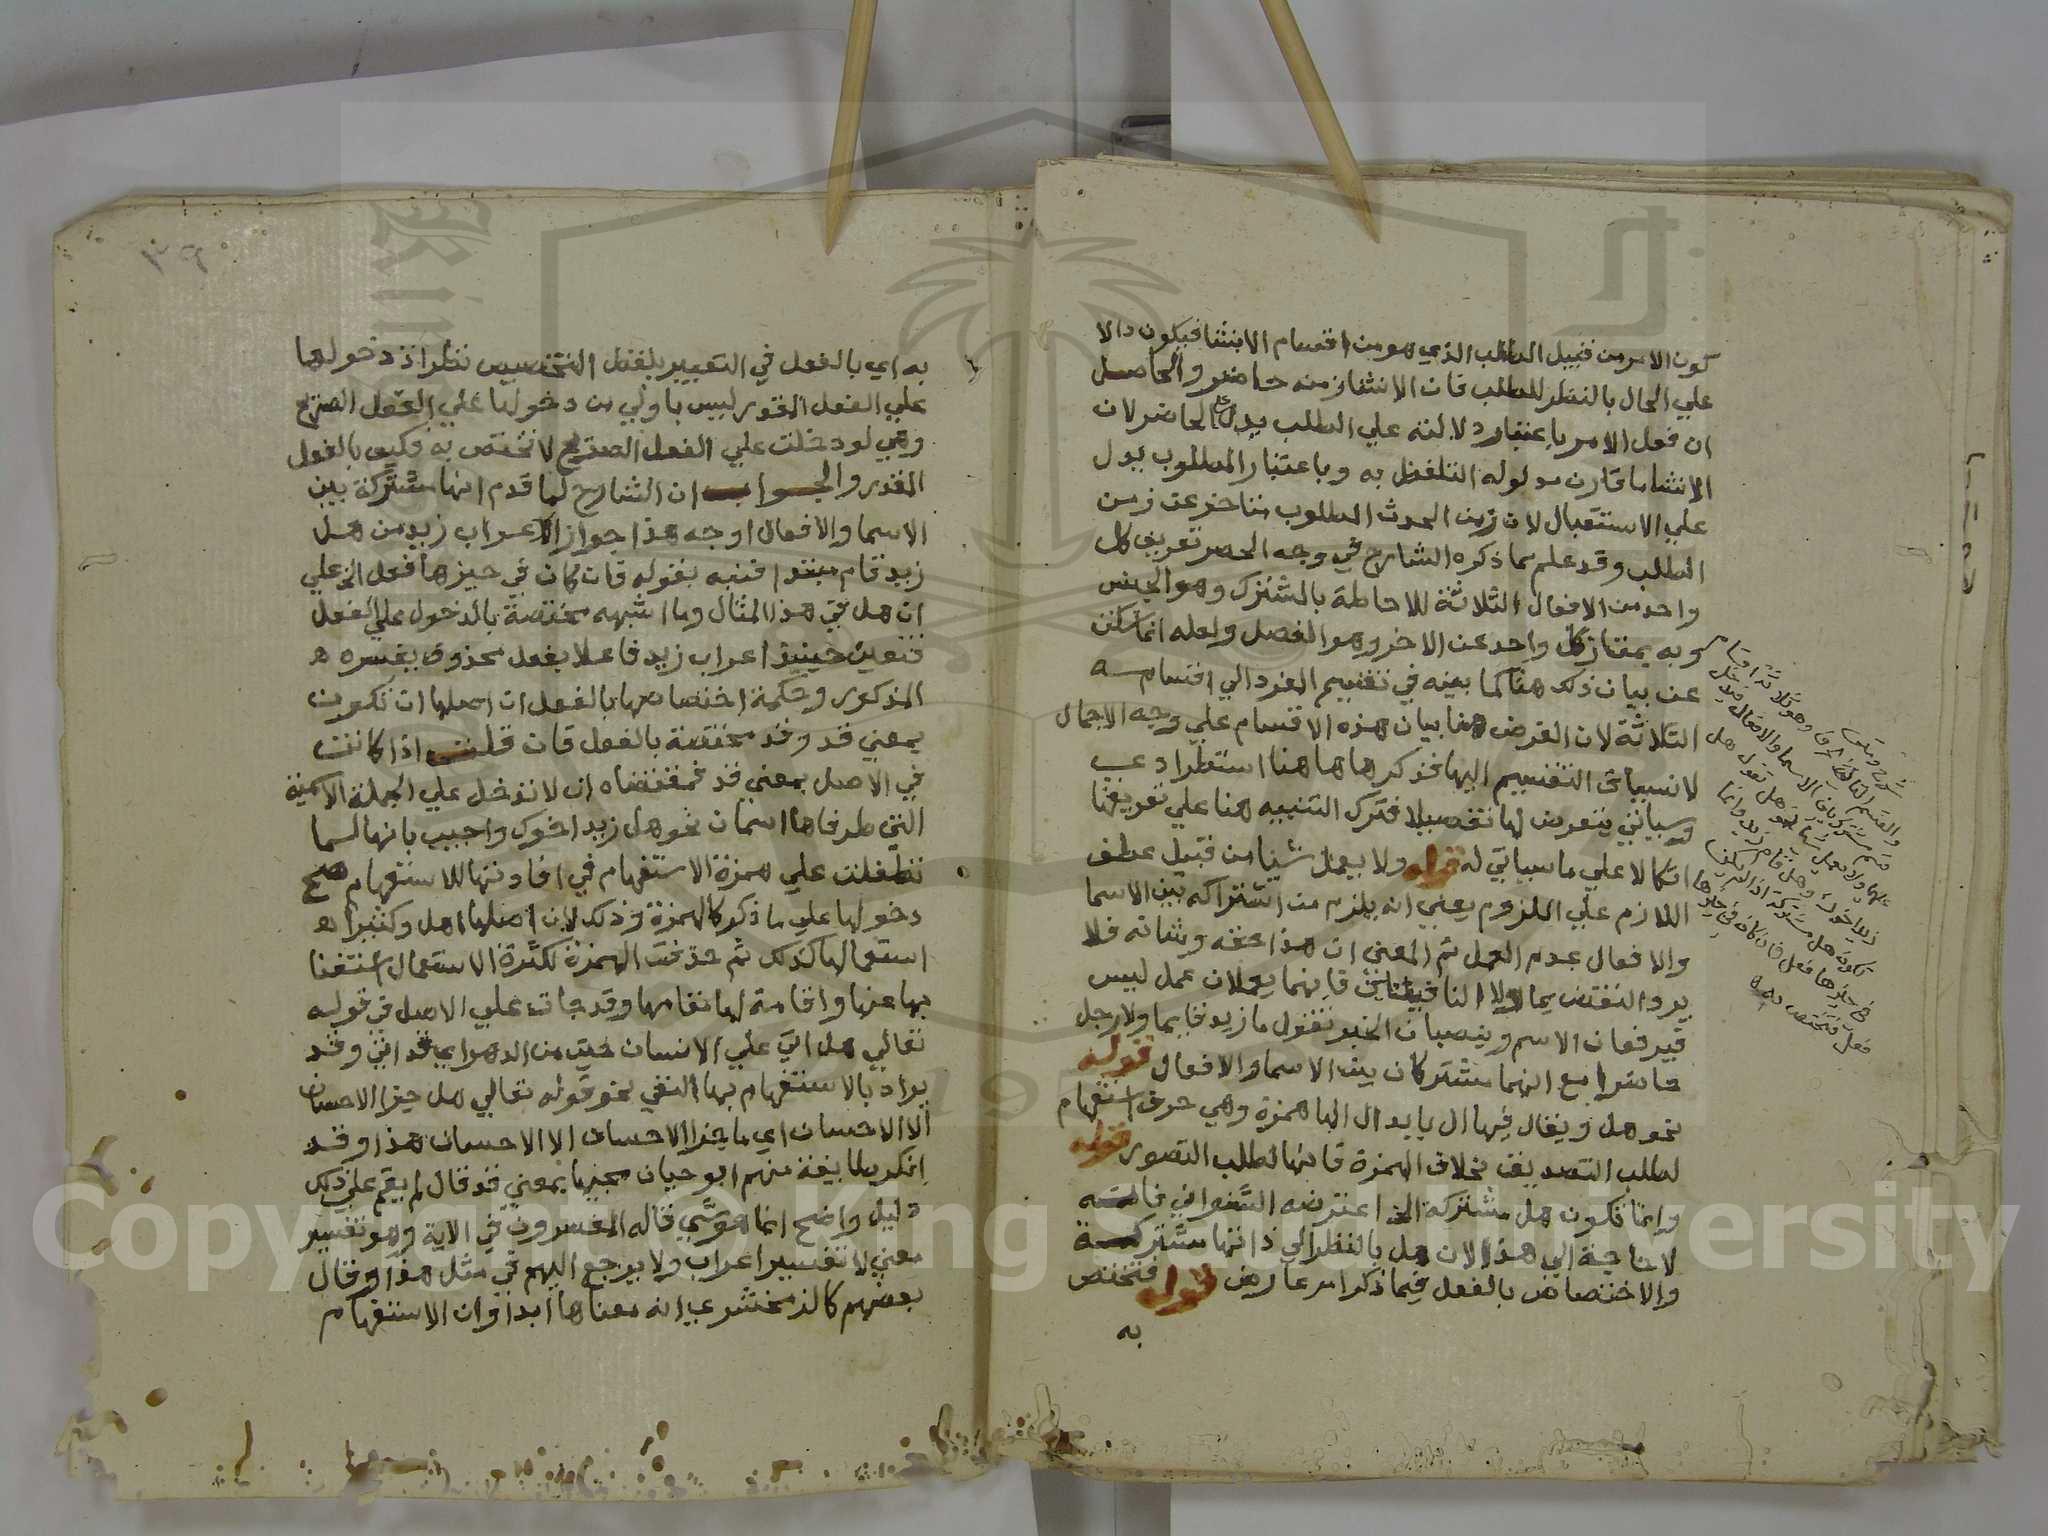 كون الامر من قبيل الطلب الذي هو من اقسام الانشا فيكون دالا
علي الحال بالنظر للطلب فان الانشا زمنه حاضر والحاصل
ان فعل الامر باعتبار دلالته علي الطلب يدل علي الحاضر لان
الانشا ما قارن مدلوله التلفظ به وباعتبار المطلوب يدل
علي الاستقبال لان زمن الحدث المطلوب متاخر عن زمن
الطلب وقد علم مما ذكره الشارح في وجه الحصر تعريف كل
واحد من الافعال الثلاثة للاحاطة بالمشترك وهو الجنس
وبه يمتاز كل واحد عن الاخر وهو الفصل ولعله انما سكت
عن بيان ذلك هنا كما بينه في تقسيم المفرد الي اقسامه
الثلاثة لان الغرض هنا بيان هذه الاقسام علي وجه الاجمال
لانسياق التقسيم اليها فذكرها هاهنا استطرادي
وسياتي يتعرض لها تفصيلا فترك التنبيه هنا علي تعريفها
اتكالا علي ما سياتي له قوله ولا يعمل شيا من قبيل عطف
اللازم علي الملزوم يعني انه يلزم من اشتراكه بين الاسما
والافعال عدم العمل ثم المعني ان هذا حقه وشانه فلا
يرد النقض بما ولا النافيتين فانهما يعملان عمل ليس
فيرفعان الاسم وينصبان الخبر تقول ما زيد قايما ولا رجل
حاضرا مع انهما مشتركان بين الاسما والافعال قوله
نحو هل ويقال فيها ال بابدال الها همزة وهي حرف استفهام
لطلب التصديق بخلاف الهمزة فانها لطلب التصور قوله
وانما تكون هل مشتركة الخ اعترضه الشنواني فانه
لا حاجة الي هذا لان هل بالنظر الي ذاتها مشتركة
والاختصاص بالفعل فيما ذكر امر عارض قوله فتختص
به
شرح ومتن
والقسم الثالث
قسم مشترك بين الاسما والافعال فلا يختص
زيد اخوك وهل قام زيد وانما
تكون هل مشتركة اذا لم يكن
في حيزها فعل فان كان في حيزها
فعل فتختص به
٣٩
به اي بالفعل في التعبير بلفظ التخصيص نظر اذ دخولها
علي الفعل المقدر ليس باولي من دخولها علي الفعل الصريح
وهي لو دخلت علي الفعل الصريح لا تختص به فكيف بالفعل
المقدر والجواب ان الشارح لما قدم انها مشتركة بين
الاسما والافعال اوجه هذا جواز الاعراب زيد من هل
زيد قام مبتدا فنبه بقوله فان كان في حيزها فعل الخ علي
ان هل في هذا المثال وما اشبهه مختصة بالدخول علي الفعل
فتعين حينيذ اعراب زيد فاعلا بفعل محذوف يفسره
المذكور وحكمة اختصاصها بالفعل ان اصلها ان تكون
بمعني قد وقد مختصة بالفعل فان قلت اذا كانت
في الاصل بمعني قد فمقتضاه ان لا تدخل علي الجملة الاسمية
التي طرفاها اسمان نحو هل زيد اخوك واجيب بانها لما
تطفلت علي همزة الاستفهام في افادتها للاستفهام صح
دخولها علي ما ذكر كالهمزة وذلك لان اصلها اهل وكثيرا
استعمالها كذلك ثم حذفت الهمزة لكثرة الاستعمال استغنا
بها عنها واقامة لها مقامها وقد جات علي الاصل في قوله
تعالي هل اتي علي الانسان حين من الدهر اي قد اتي وقد
يراد بالاستفهام بها النفي نحو قوله تعالي هل جزا الاحسان
الا الاحسان اي ما جزا الاحسان الا الاحسان هذا وقد
انكر طايفة منهم ابو حيان مجيها بمعني قد قال لم يقم علي ذلك
دليل واضح انما هو شي قاله المفسرون في الاية وهو تفسير
معني لا تفسير اعراب ولا يرجع اليهم في مثل هذا وقال
بعضهم كالزمخشري انه معناها ابدا وان الاستفهام